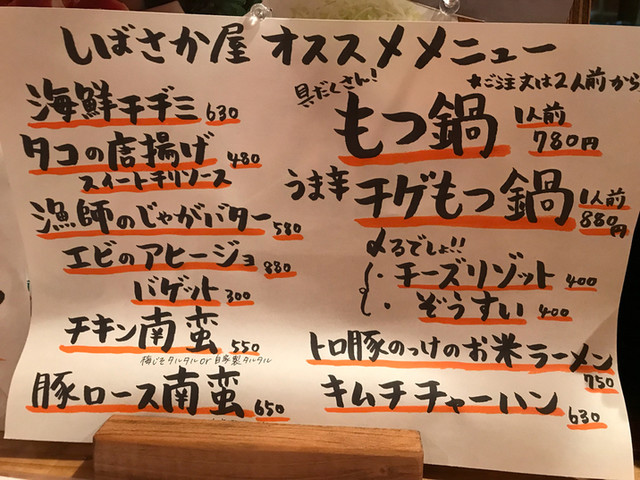 しばさか屋 オススメメニュー
海鮮チヂミ 630
タコの唐揚げ 480
スイートチリソース
漁師のじゃがバター 580
エビのアヒージョ 880
バゲット 300
チキン南蛮 550
梅じそタルタル or 自家製タルタル
豚ロース南蛮 650
★ご注文は2人前から
具だくさん!
もつ鍋 1人前 780円
うま辛 チゲもつ鍋 1人前 880円
〆るでしょ!!
チーズリゾット 400
ぞうすい 400
トロ豚のっけのお米ラーメン 750
キムチチャーハン 630